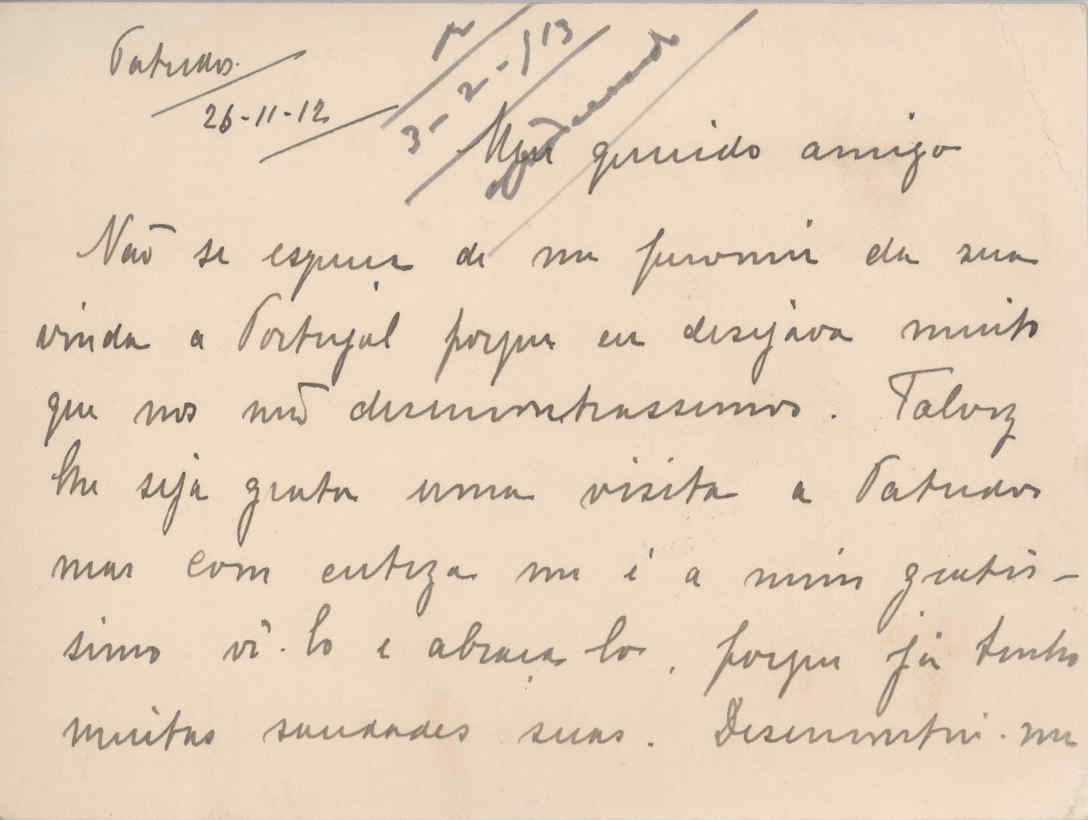 Patudos.
26-11-12
3-2-913
Meu querido amigo
Não se esqueça de me prevenir da sua
vinda a Portugal porque eu desejava muito
que nos não desencontrassemos. Talvez
lhe seja grata uma visita a Patudos
mas com certeza me é a mim gratis-
simo vê-lo e abraça-lo, porque já tenho
muitas saudades suas. Desencontrei-me